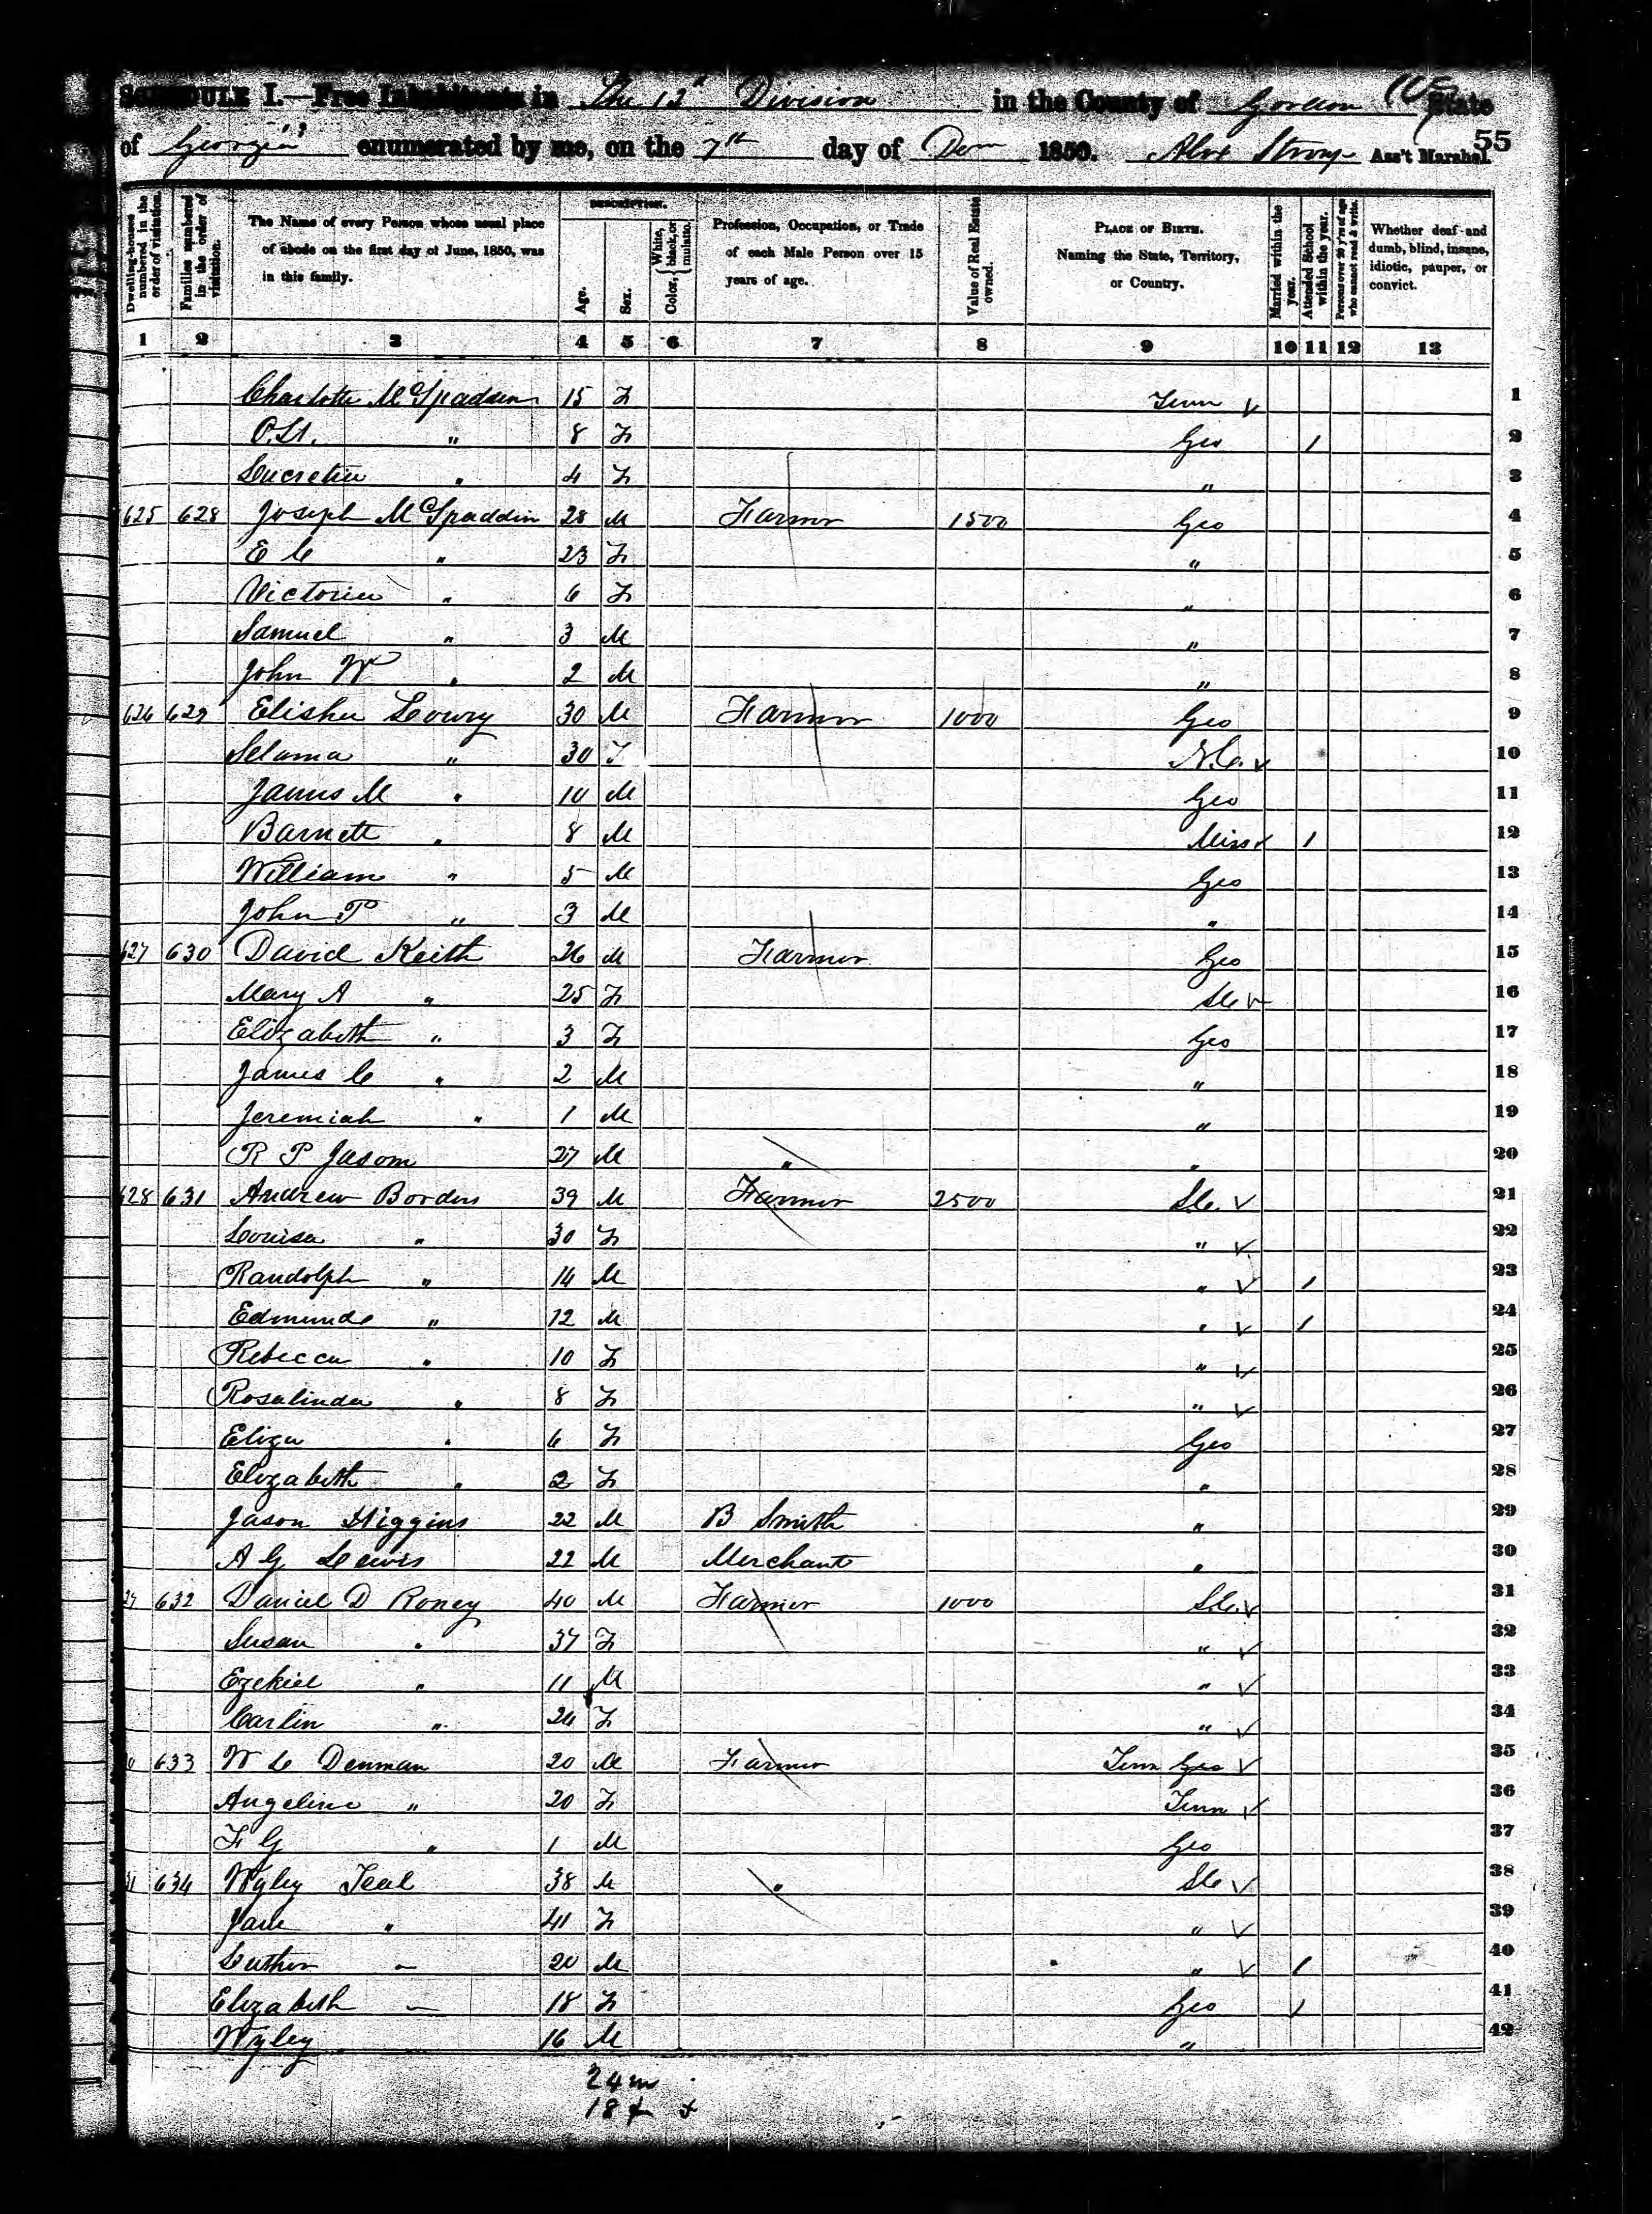 SCHEDULE I.—Free Inhabitants in The 12th Division in the County of Gordon State
of Georgia enumerated by me, on the 7th day of Dem 1850. Ass't Marshal.
55
Dwelling-houses numbered in the order of visitation.
Families numbered in the order of visitation.
The Name of every Person whose usual place of abode on the first day of June, 1850, was in this family.
DESCRIPTION.
Age.
Sex.
Color, { White, black, or mulatto.
Profession, Occupation, or Trade of each Male Person over 15 years of age.
Value of Real Estate owned.
PLACE OF BIRTH. Naming the State, Territory, or Country.
Married within the year.
Attended School within the year.
Persons over 20 y'rs of age who cannot read & write.
Whether deaf and dumb, blind, insane, idiotic, pauper, or convict.
1 2 3 4 5 6 7 8 9 10 11 12 13
Charlotte McSpadden 15 F Tenn 1
" 8 F Geo 1 2
Lucretia " 4 F " 3
625 628 Joseph McSpaddin 28 M Farmer 1500 Geo 4
E C " 23 F " 5
Victoria " 6 F " 6
Samuel " 3 M " 7
John W " 2 M " 8
626 629 Elisha Lowry 30 M Farmer 1000 Geo 9
Selama " 30 F N.C. 10
James M " 10 M Geo 11
Barnett " 8 M Miss 1 12
William " 5 M Geo 13
John P " 3 M " 14
627 630 David Keith 26 M Farmer Geo 15
Mary A " 25 F SC 16
Elizabeth " 3 F Geo 17
James C " 2 M " 18
Jeremiah " 1 M " 19
R P Jasom 27 M " " 20
628 631 Andrew Borders 39 M Farmer 2500 S.C. 21
Louisa " 30 F " 22
Randolph " 14 M " 1 23
Edmund " 12 M " 1 24
Rebecca " 10 F " 25
Rosalinda " 8 F " 26
Eliza " 6 F Geo 27
Elizabeth " 2 F " 28
Jason Higgins 22 M B Smith " 29
A G Lewis 22 M Merchant " 30
29 632 Daniel D Roney 40 M Farmer 1000 S.C. 31
Susan " 37 F " 32
Ezekiel " 11 M " 33
Carlin " F " 34
0 633 W C Denman 20 M Farmer Tenn Geo 35
Angeline " 20 F Tenn 36
F G " 1 M Geo 37
31 634 Wyley Teal 38 M " SC 38
Jane " 41 F " 39
Luther " 20 M " 1 40
Elizabeth " 18 F Geo 1 41
Wyley 16 M " 42
24 m
18 f